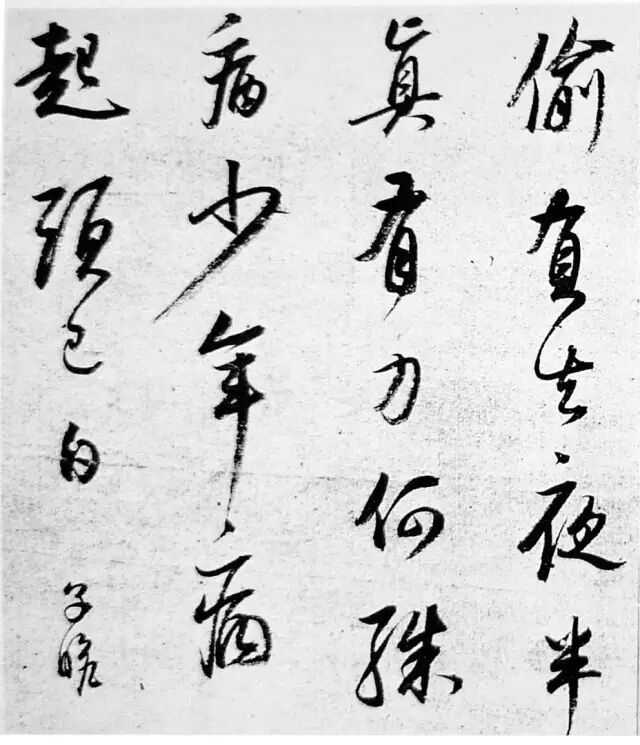 偷負去夜半
真有力何殊
病少年病
起頭已白 子瞻